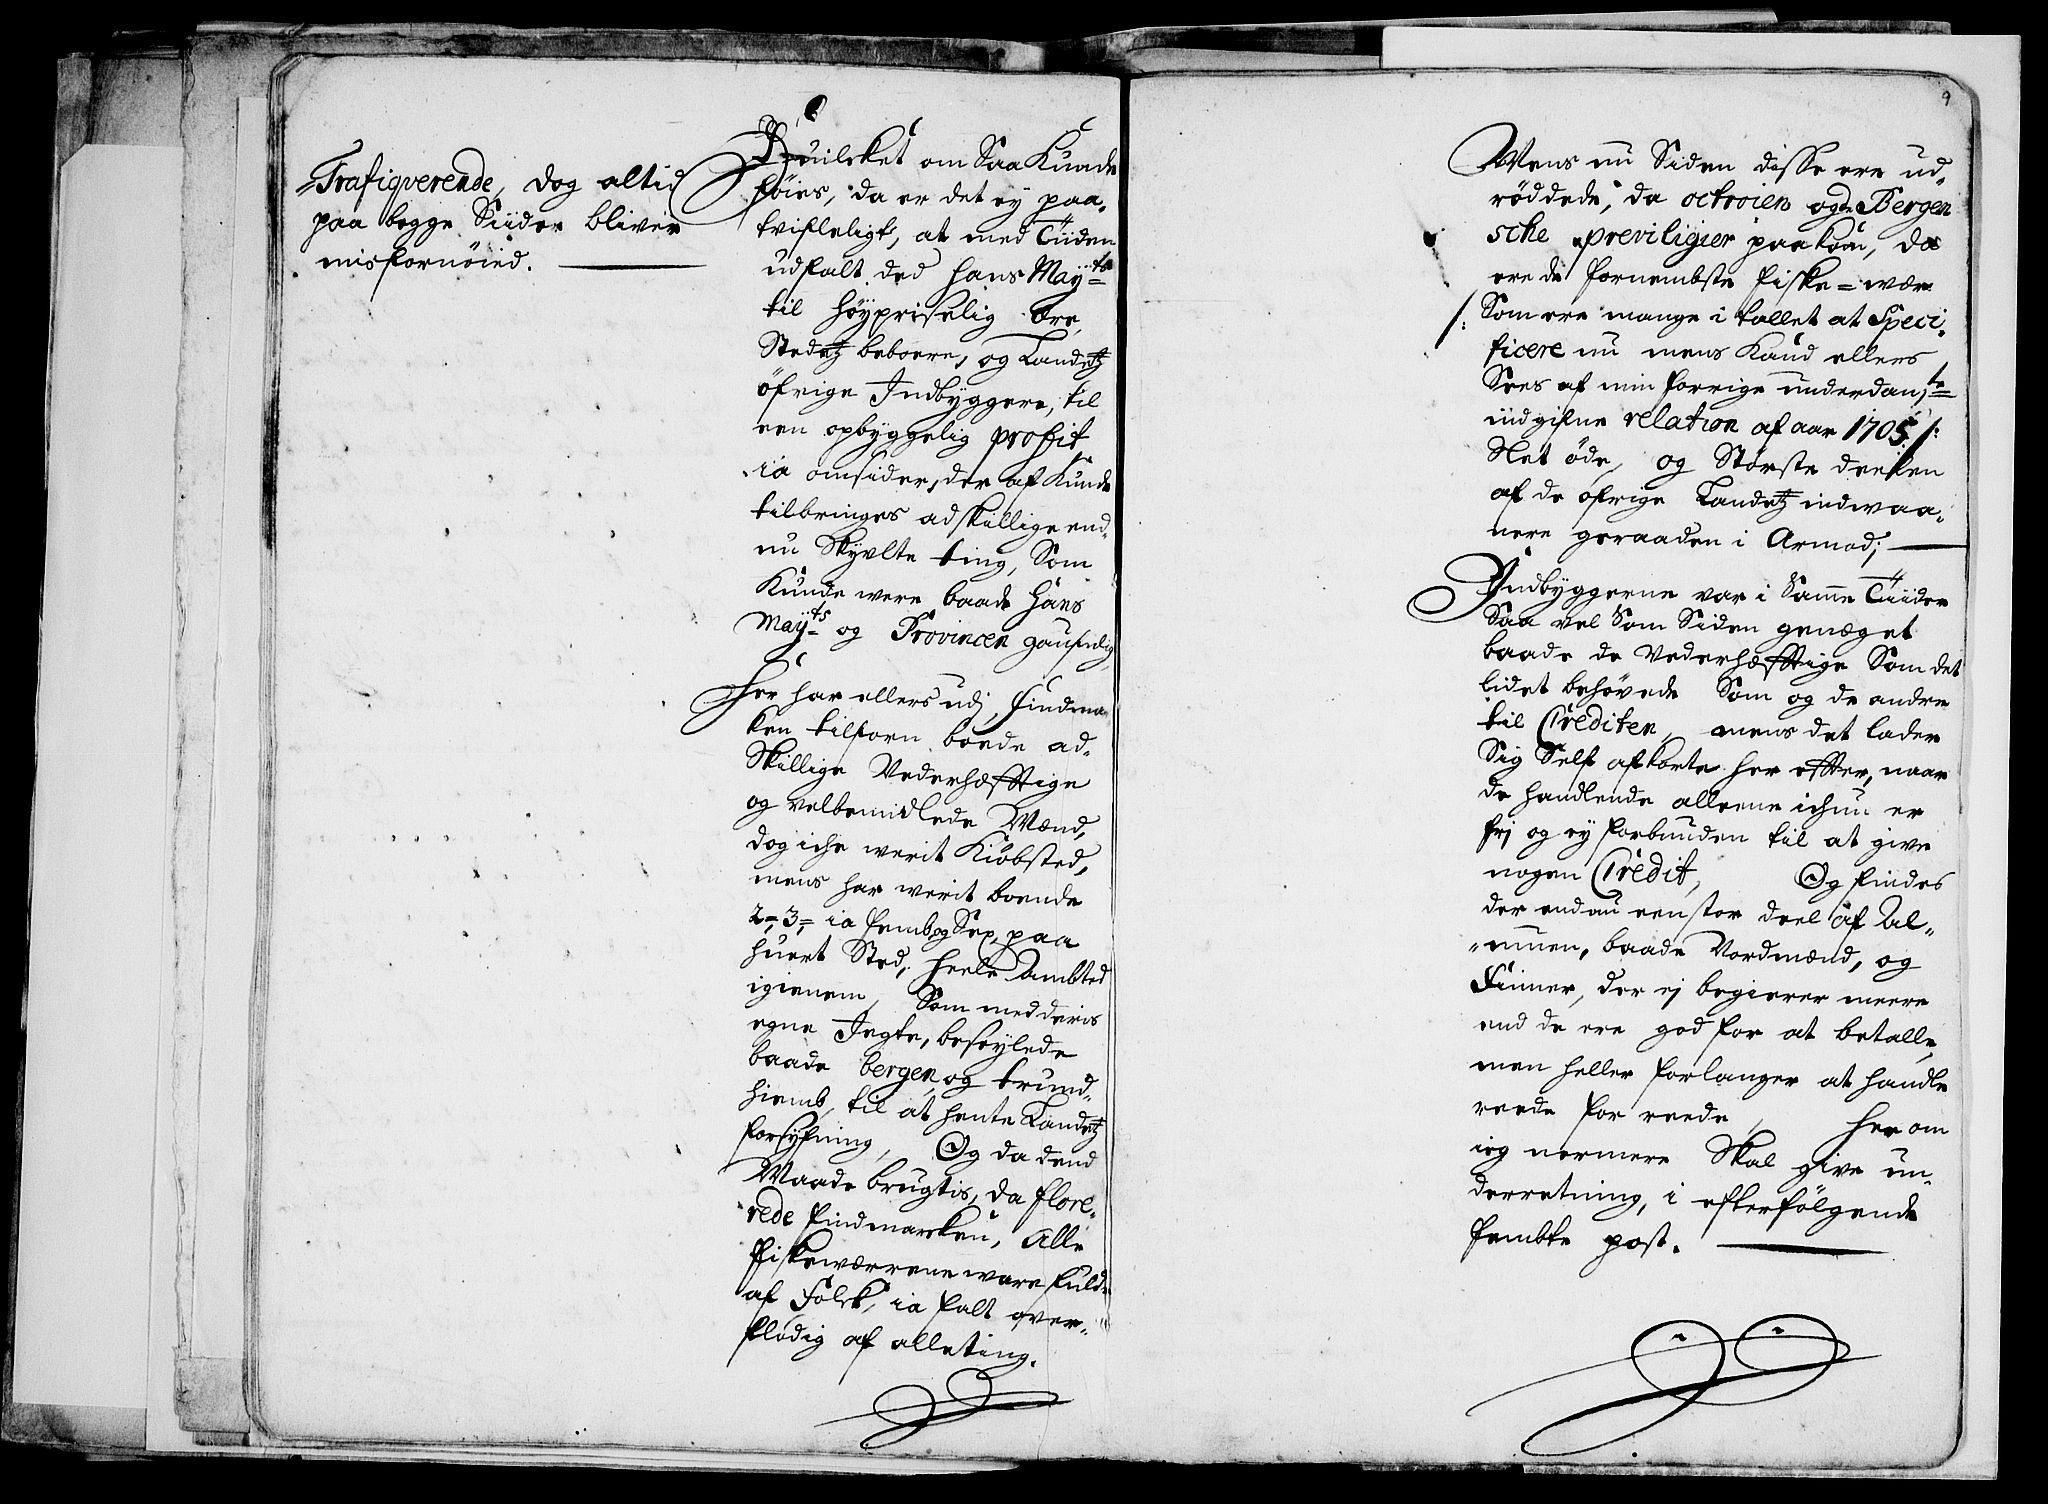 Trafiqverende, dog altid
paa begge Siider bliver
misfornøied.
Huilcket om Saa Kunde
føies, da er det ej paa-
tvifleligt, at med Tiiden
udfalt ded hans Mayts
til høypriselig Ære,
Stedetz beboere, og Landetz
øfrige Indbyggere, til
een opbyggelig profit
ia omsider, der af Kunde
tilbringes adskillige end-
nu Skyvlte ting, Som
Kunde were baade hans
Mayts og Provincen gaufnlig
her har ellers udj, findma-
ken tilforn boede ad-
Skillige Vederhæfftige
og velbemidlede Mænd,
dog iche werit Kiøbsted,
mens har werit boende
2, 3, ia femb og Sex, paa
huert Sted, heele Ambted
igienem, Som med deris
egne Jegte, beseylede
baade bergen og trund-
hiemb, til at hente Landetz
forsyfning, Og da dend
Maade brugtis, da flore-
rede findmarcken, Alle
fiskewærrene ware fulde
af Folck, ia falt over-
flødig af alleting.
9
Mens nu Siden disse ere ud-
røddede, da octroien og de Bergen
sche previligier paakom, da
ere de fornembste fiske-wær
/: Som ere mange i tallet at Speci-
ficere nu mens Kand ellers
Sees af min forrige underdan:te
udgifne relation af aar 1705 :/
Slet øde, og Største deelen
af de øfrige Landetz indwaa-
nere geraaden i Armod;
Indbyggerne var i Samme Tiider
Saa vel Som Siden genæget
baade de Vederhæfftige Som det
lidet behøvede Som og de andre
til Crediten, mens det lader
Sig Self afkorte her effter, naar
de handlende alleene ichun er
frj og ej forbunden til at give
nogen Credit, Og findes
der endnu een stor deel af Al-
muen, baade Nordmænd, og
Finner, der ej begierer meere
end de ere god for at betalle,
men heller forlanger at handle
reede for reede, her om
ieg nermere Skal give un-
derretning, i efterfølgende
fembte post.